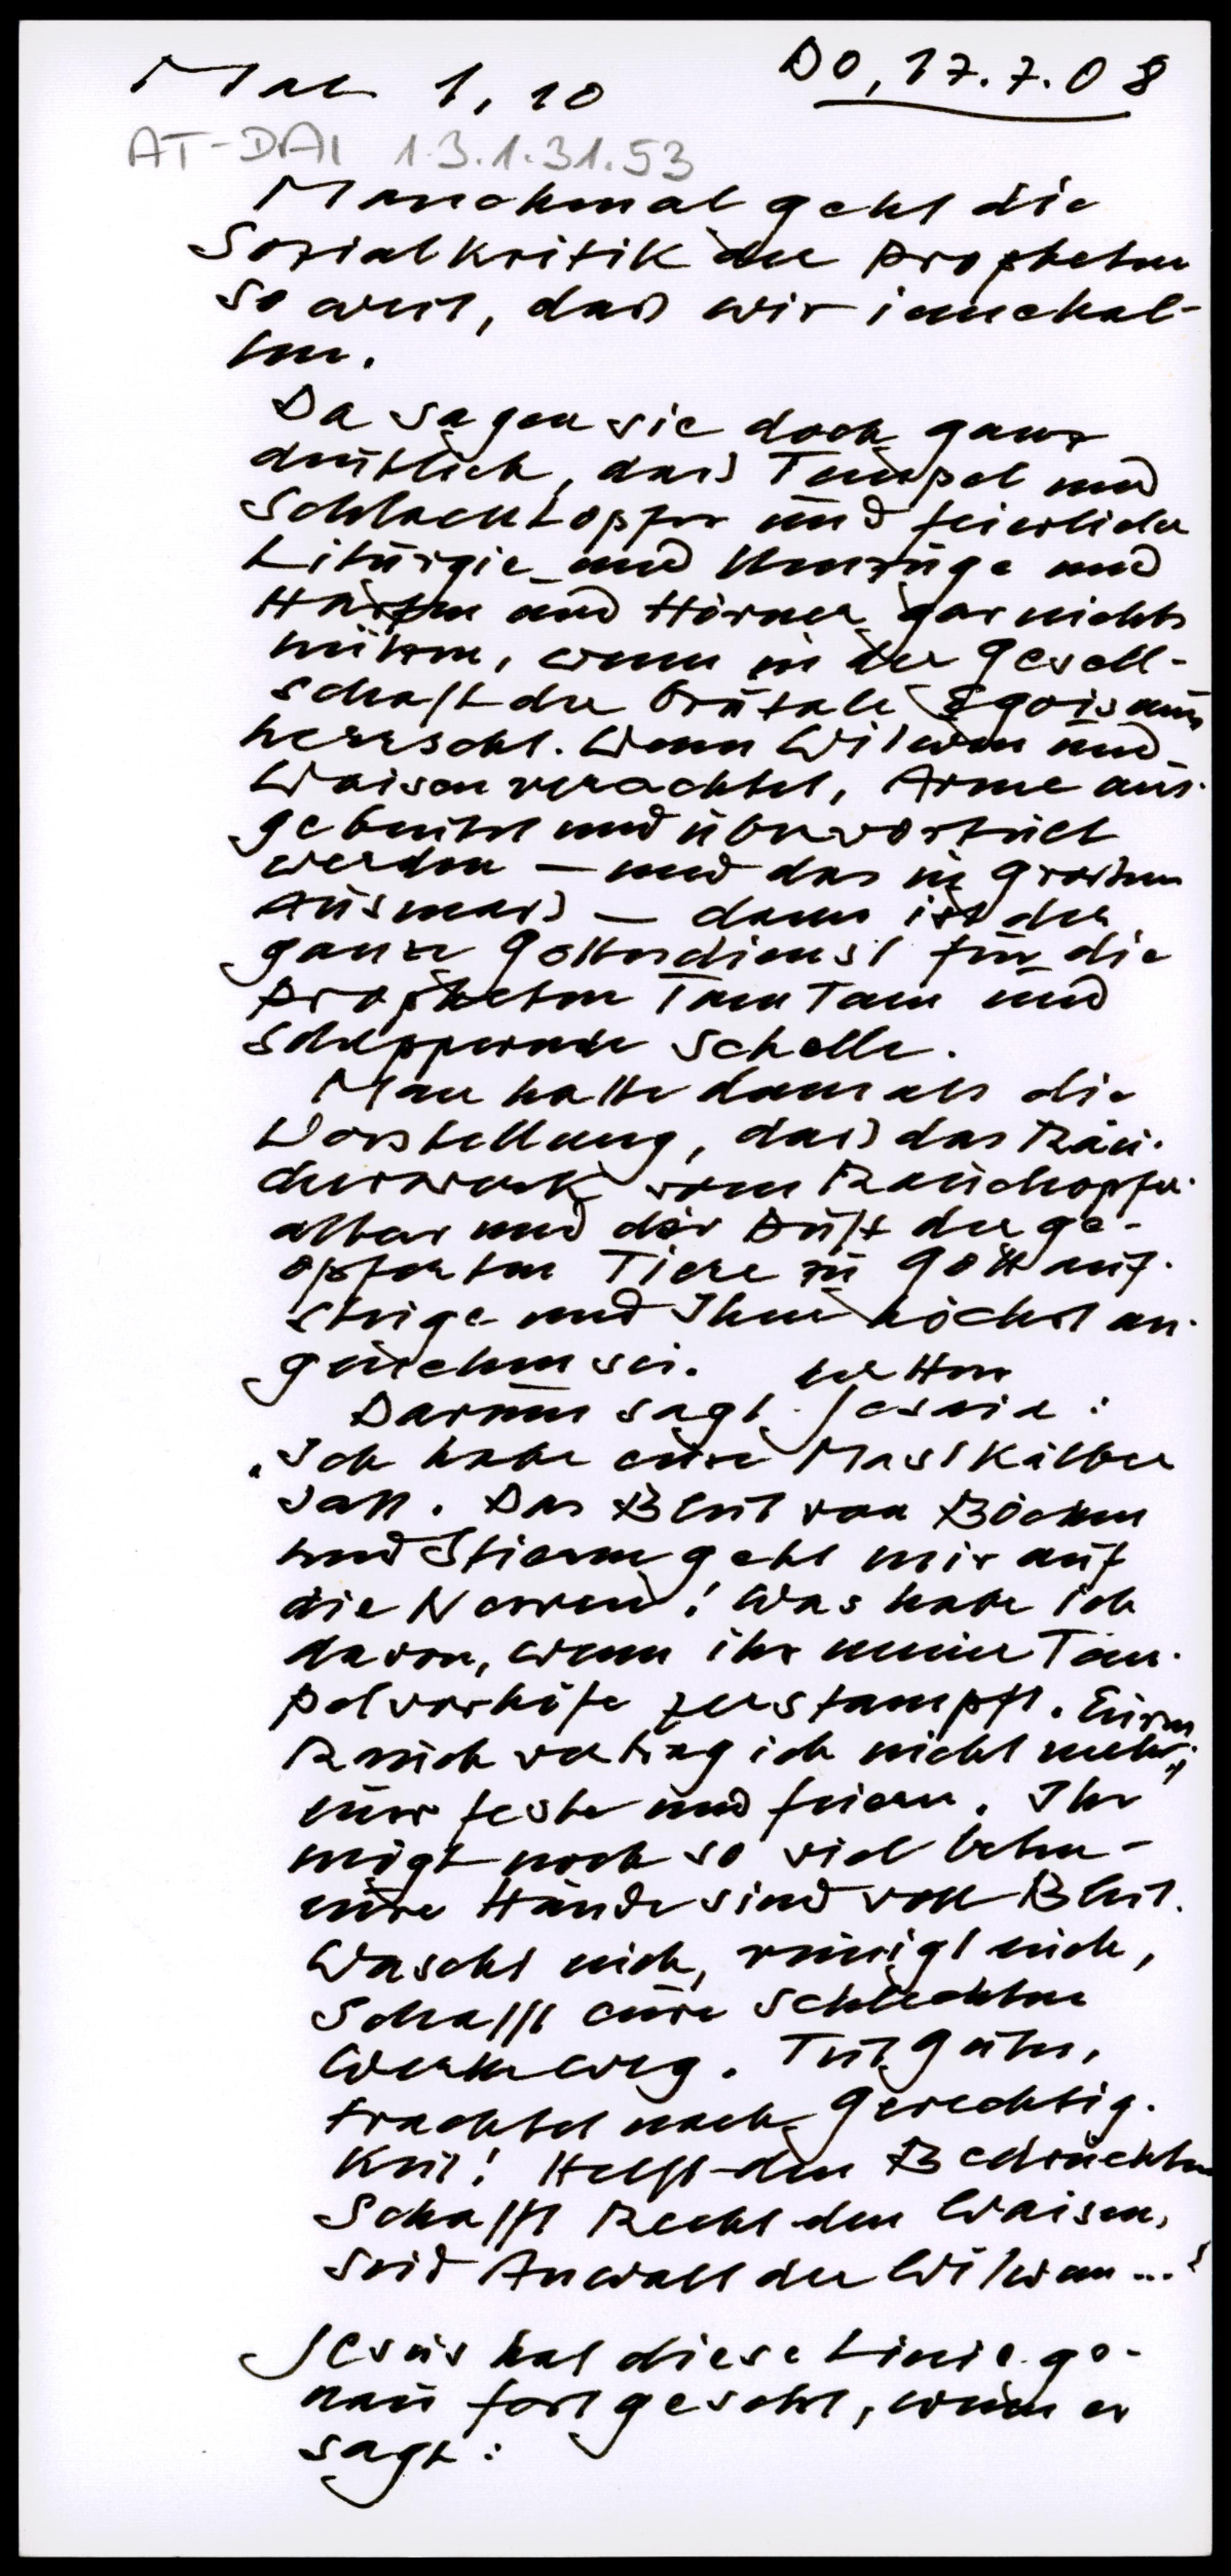 Mal 1, 10
DO, 17.7.08
AT-DAI 1.3.1.31.53
Manchmal geht die
Sozialkritik der Propheten
so weit, dass wir innehal-
ten.
Da sagen sie doch ganz
deutlich, dass Tempel und
Schlachtopfer und feierliche
Liturgie und Umzüge und
Harfen und Hörner gar nichts
nützen, wenn in der Gesell-
schaft der brutale Egoismus
herrscht. Wenn Witwen und
Waisen verachtet, Arme aus-
gebeutet und übervorteilt
werden – und das in grossem
Ausmass – dann ist der
ganze Gottesdienst für die
Propheten TamTam und
scheppernde Schelle.
Man hatte damals die
Vorstellung, dass das Räu-
cherwerk vom Rauchopfer-
altar und der Duft der ge-
opferten Tiere zu Gott auf-
steige und Ihm höchst an-
genehm sei.
Darum sagt der Herr Jesaia:
"Ich habe eure Mastkälber
satt. Das Blut von Böcken
und Stieren geht mir auf
die Nerven! Was habe ich
davon, wenn ihr meine Tem-
pelvorhöfe zerstampft. Euren
Rauch vertrag ich nicht mehr,
eure Feste und Feiern. Ihr
mögt noch so viel beten -
eure Hände sind voll Blut.
Wascht euch, reinigt euch,
Schafft eure schlechten
Werke weg. Tut Gutes,
trachtet nach Gerechtig-
keit! Helft den Bedrückten
Schafft Recht den Waisen,
Seid Anwalt der Witwen ..."
Jesus hat diese Linie ge-
nau fortgesetzt, wenn er
sagt: